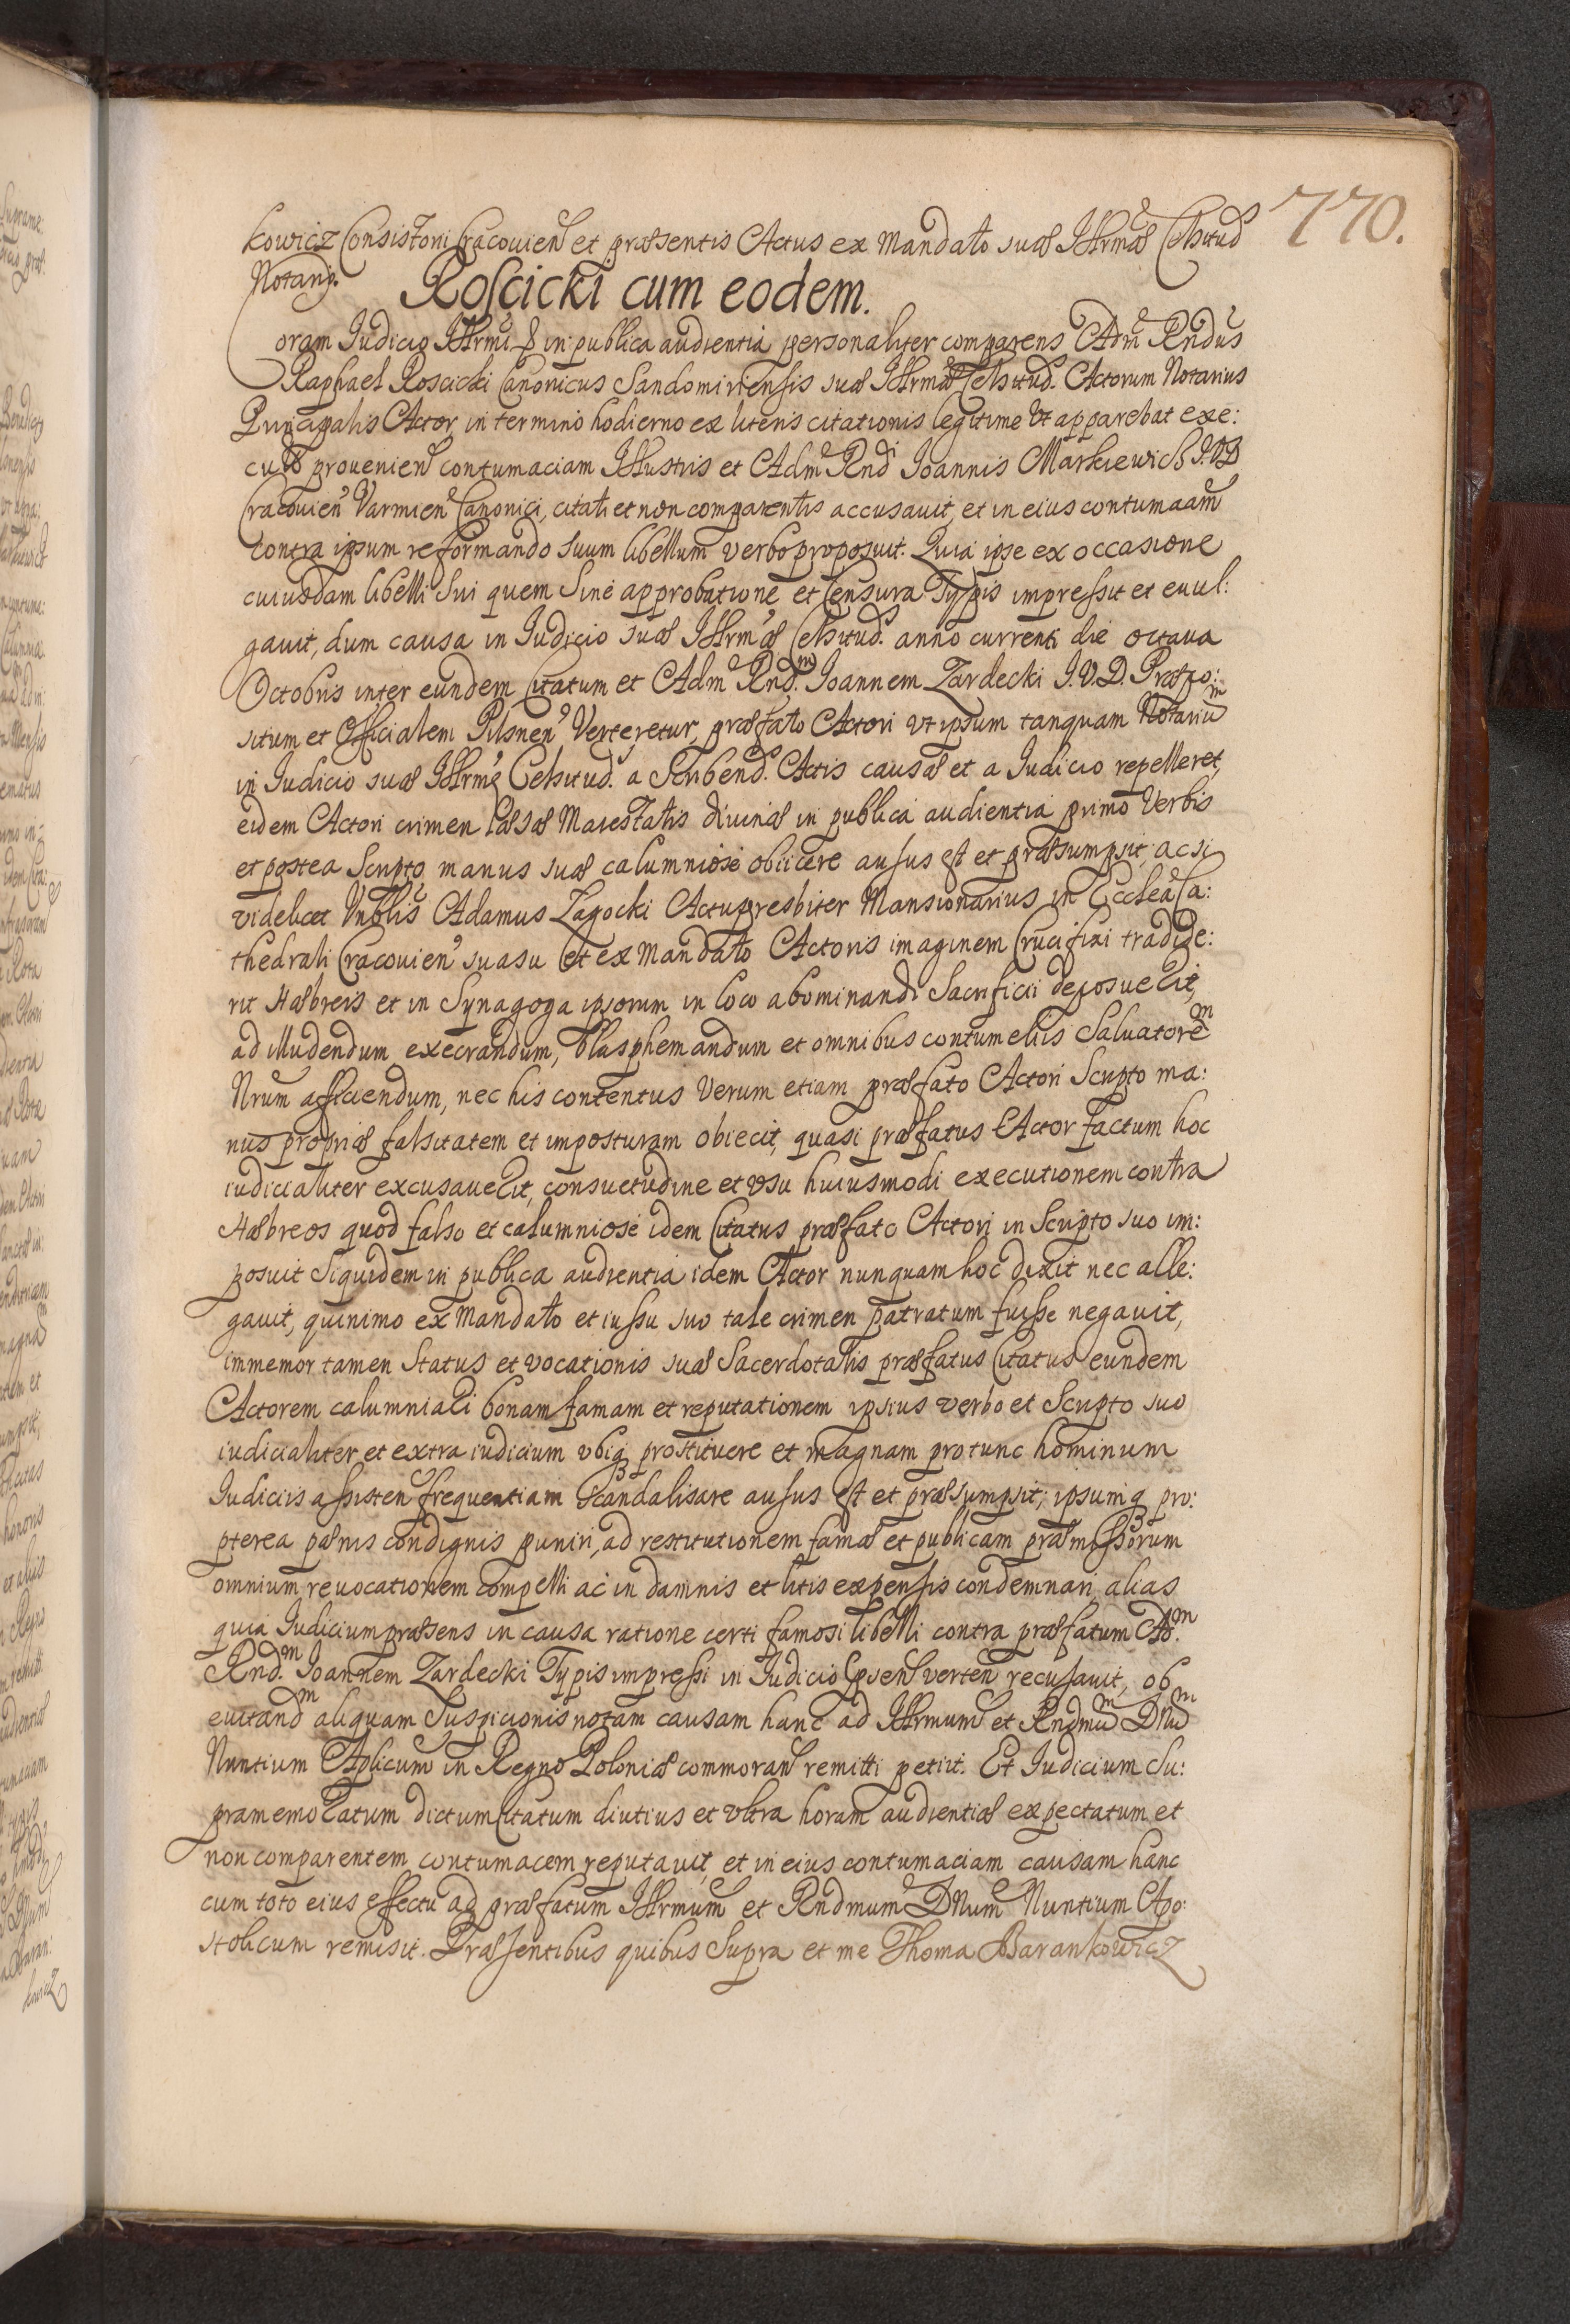 770.
kowicz Consistorii Cracouien et præsentis Actus ex Mandato suæ Illrmæ Celsitud
Notarij.
Roscicki cum eodem.
Coram Iudicio Illrmi in publica audientia personaliter comparens Adm Rndus
Raphael Roscicki Canonicus Sandomiriensis suæ Illrmæ Celsitud. Actorum Notarius
Principalis Actor, in termino hodierno ex literis citationis legitime Vt apparebat exe:
cut provenien contumaciam Illustris et Adm Rnd Ioannis Markiewich I.V.D
Cracouien Varmien Canonici, citati et non comparentis accusauit, et in eius contumaciam
contra ipsum reformando suum libellum verbo proposuit. Quia ipse ex occasione
cuiusdam libelli Sui quem Sine approbatione et Censura Typis impressit et euul:
gauit, dum causa in Iudicio suæ Illrmæ Celsitud. anno currenti die octaua
Octobris inter eundem Citatum et Adm Rnd.m Ioannem Zardecki I.V.D. Præpo:
situm et Officialem Pilsnen Verteretur, præfato Actori vt ipsum tanquam Notariu
in Iudicio suæ Illrmæ Celsitud. a Scribend. Actis causæ et a Iudicio repelleret,
eidem Actori crimen læsæ Maiestatis diuinæ in publica audientia primo Verbis
et postea Scripto manus suæ calumniose obiicere ausus est et præsumpsit, ac si
videlicet Vnblis Adamus Zagocki Actupresbiter Mansionarius in Ecclea Ca:
thedrali Cracouien suasu et ex Mandato Actoris imaginem Crucifixi tradide:
rit Hæbreis et in Synagoga ipsorum in loco abominandi Sacrificii deposuerit,
ad illudendum execrandum, blasphemandum et omnibus contumeliis Saluatorem
Nrum afficiendum, nec his contentus Verum etiam præfato Actori Scripto ma:
nus propriæ falsitatem et imposturam obiecit, quasi præfatus Actor factum hoc
iudicialiter excusauerit, consuetudine et vsu huiusmodi executionem contra
Hæbreos quod falso et calumniose idem Citatus præfato Actori in Scripto suo im:
posuit Siquidem in publica audientia idem Actor nunquam hoc dixit nec alle:
gauit, quinimo ex Mandato et iussu suo tale crimen patratum fuisse negauit,
immemor tamen Status et vocationis suæ Sacerdotalis præfatus Citatus eundem
Actorem calumniari bonam famam et reputationem ipsius verbo et Scripto suo
iudicialiter et extra iudicium vbiq prostituere et magnam protunc hominum
Iudiciis assisten frequentiam Scandalisare ausus est et præsumpsit; ipsumq pro:
pterea pænis condignis puniri, ad restitutionem famæ et publicam præmissorum
omnium reuocationem compelli ac in damnis et litis expensis condemnari, alias
quia Iudicium præsens in causa ratione certi famosi libelli contra præfatum Ad.m
Rnd.m Ioannem Zardecki Typis impressi in Iudicio pñen verten recusauit, ob
euitand aliquam Suspicionis notam causam hanc ad Illrmum et Rndmu Dnu
Nuntium Aplicum in Regno Poloniæ commoran remitti petiit. Et Iudicium Su:
pramemoratum dictum Citatum diutius et vltra horam audientiæ expectatum et
non comparentem contumacem reputauit, et in eius contumaciam causam hanc
cum toto eius effectu ad præfatum Illrmum et Rndmum Dnum Nuntium Apo:
stolicum remisit. Præsentibus quibus Supra et me Thoma Barankowicz